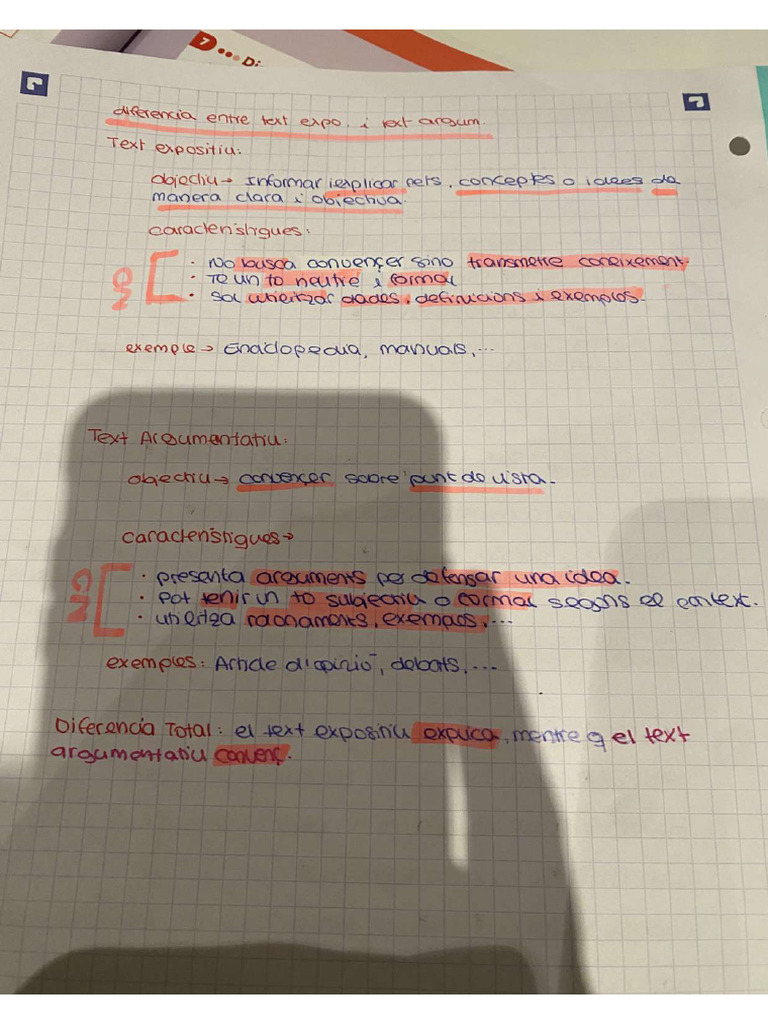 7
Di
diferencia entre text expo. i text argum.
Text expositiu:
objectiu → Informar i explicar fets, conceptes o idees de
manera clara i objectiva.
característiques:
· No busca convençer sino transmetre coneixement.
· Te un to neutre i formal
· Sol utilitzar dades, definicions i exemples.
exemple → Enciclopedia, manuals,...
Text Argumentatiu:
objectiu → convençer sobre punt de vista.
característiques →
· presenta arguments per defensar una idea.
· Pot tenir un to subjectiu o formal segons el context.
· utilitza raonaments, exemples,...
exemples: Article d'opinió, debats,...
Diferencia Total: el text expositiu explica, mentre q el text
argumentatiu convenç.